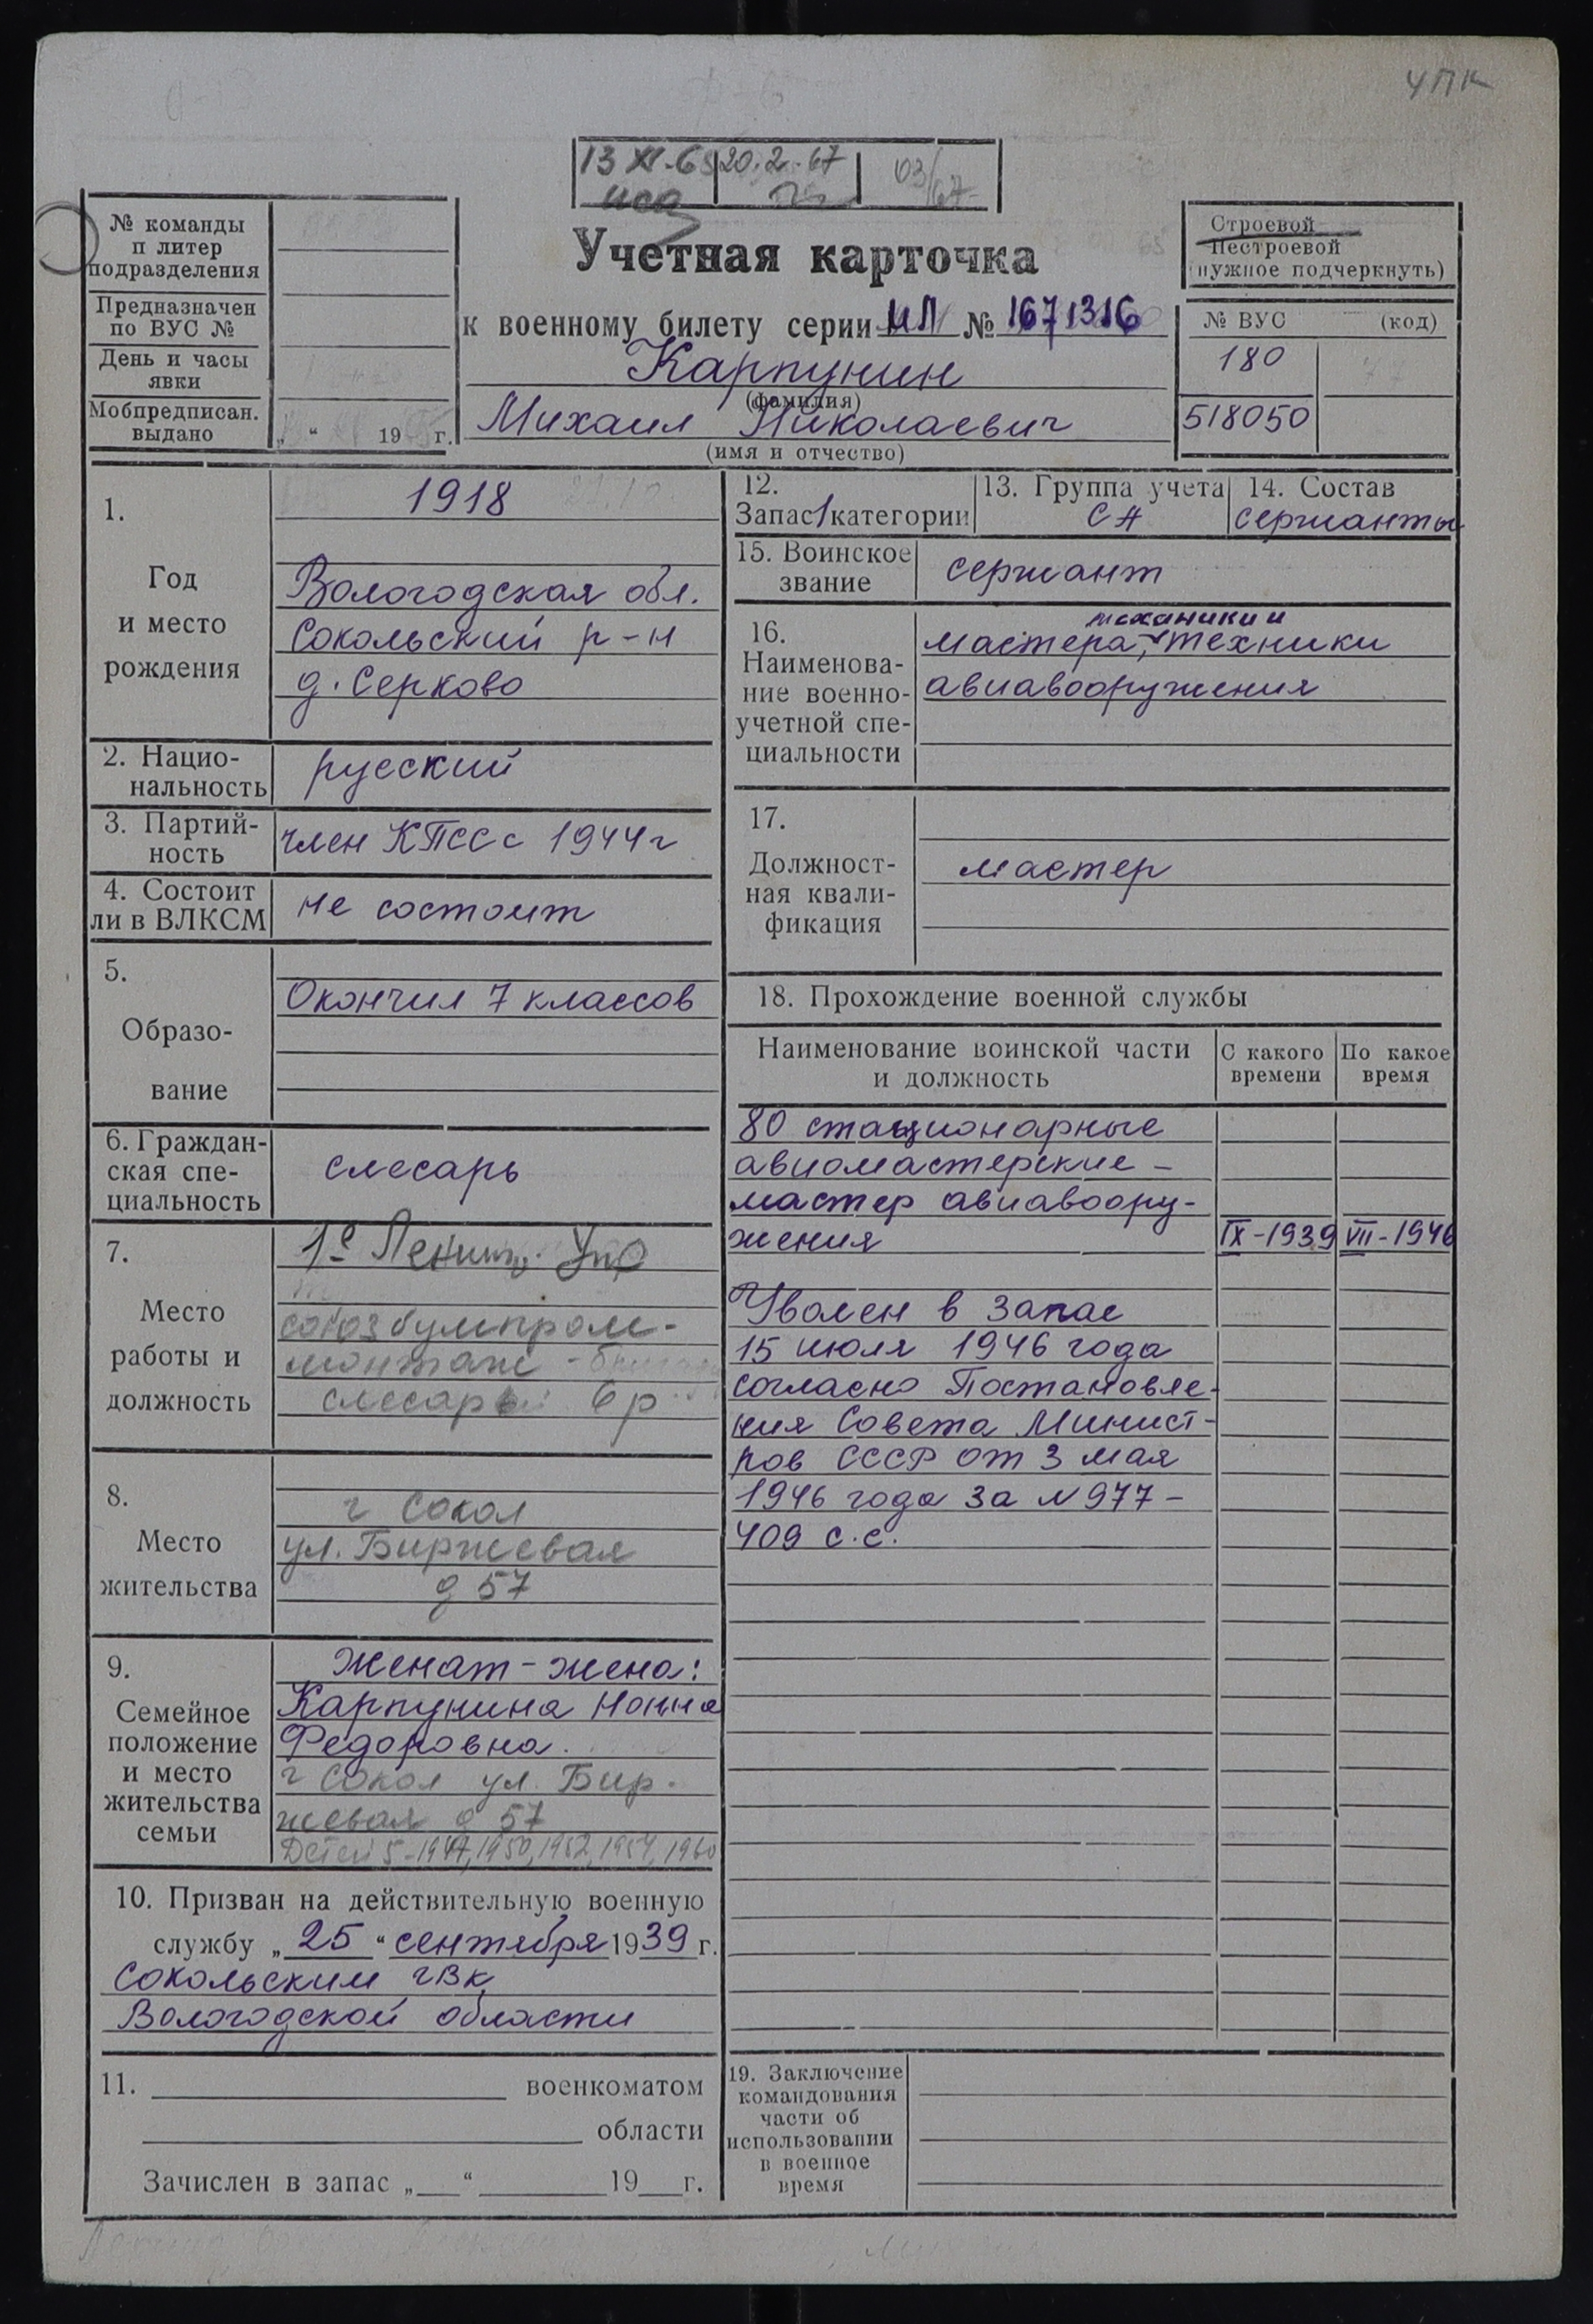 ЧПК
13 XI-65 20.2.67 03/67
№ команды
п литер
подразделения
Предназначен
по ВУС №
День и часы
явки
Мобпредписан.
выдано „ “ 19 г.
Учетная карточка
к военному билету серии НЛ № 1671316
Карпунин
(фамилия)
Михаил Николаевич
(имя и отчество)
Строевой
Нестроевой
(нужное подчеркнуть)
№ ВУС (код)
180
518050
1.
Год
и место
рождения
1918
Вологодская обл.
Сокольский р-н
д. Серково
2. Нацио-
нальность
русский
3. Партий-
ность
член КПСС с 1944 г
4. Состоит
ли в ВЛКСМ
не состоит
5.
Образо-
вание
Окончил 7 классов
6. Граждан-
ская спе-
циальность
слесарь
7.
Место
работы и
должность
1е Ленинг. Упр
союзбумпром-
монтаж -
слесарь 6 р
8.
Место
жительства
г Сокол
ул. Биржевая
д 57
9.
Семейное
положение
и место
жительства
семьи
женат - жена:
Карпунина Нонна
Федоровна.
г Сокол ул. Бир-
жевая д 57
Детей 5-1947, 1950, 1952, 1954, 1960
10. Призван на действительную военную
службу „25“ сентября 1939 г.
Сокольским гвк
Вологодской области
11. военкоматом
области
Зачислен в запас „ “ 19 г.
12.
Запас 1 категории
13. Группа учета
СА
14. Состав
сержанты
15. Воинское
звание
сержант
16.
Наименова-
ние военно-
учетной спе-
циальности
механики и
мастера, техники
авиавооружения
17.
Должност-
ная квали-
фикация
мастер
18. Прохождение военной службы
Наименование воинской части
и должность
С какого
времени
По какое
время
80 стационарные
авиомастерские -
мастер авиавоору-
жения IX-1939 VII-1946
Уволен в запас
15 июля 1946 года
согласно Постановле-
ния Совета Минист-
ров СССР от 3 мая
1946 года за N 977-
409 с.с.
19. Заключение
командования
части об
использовании
в военное
время